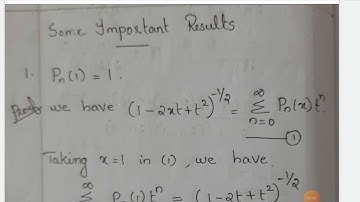 Some Important Results
1. Pn(1) = 1.
Proof we have (1-2xt+t²)^{-1/2} = ∑_{n=0}^{∞} Pn(x)tⁿ
①
Taking x=1 in (1), we have
∑^{∞} Pn(1)tⁿ = (1-2t+t²)^{-1/2}